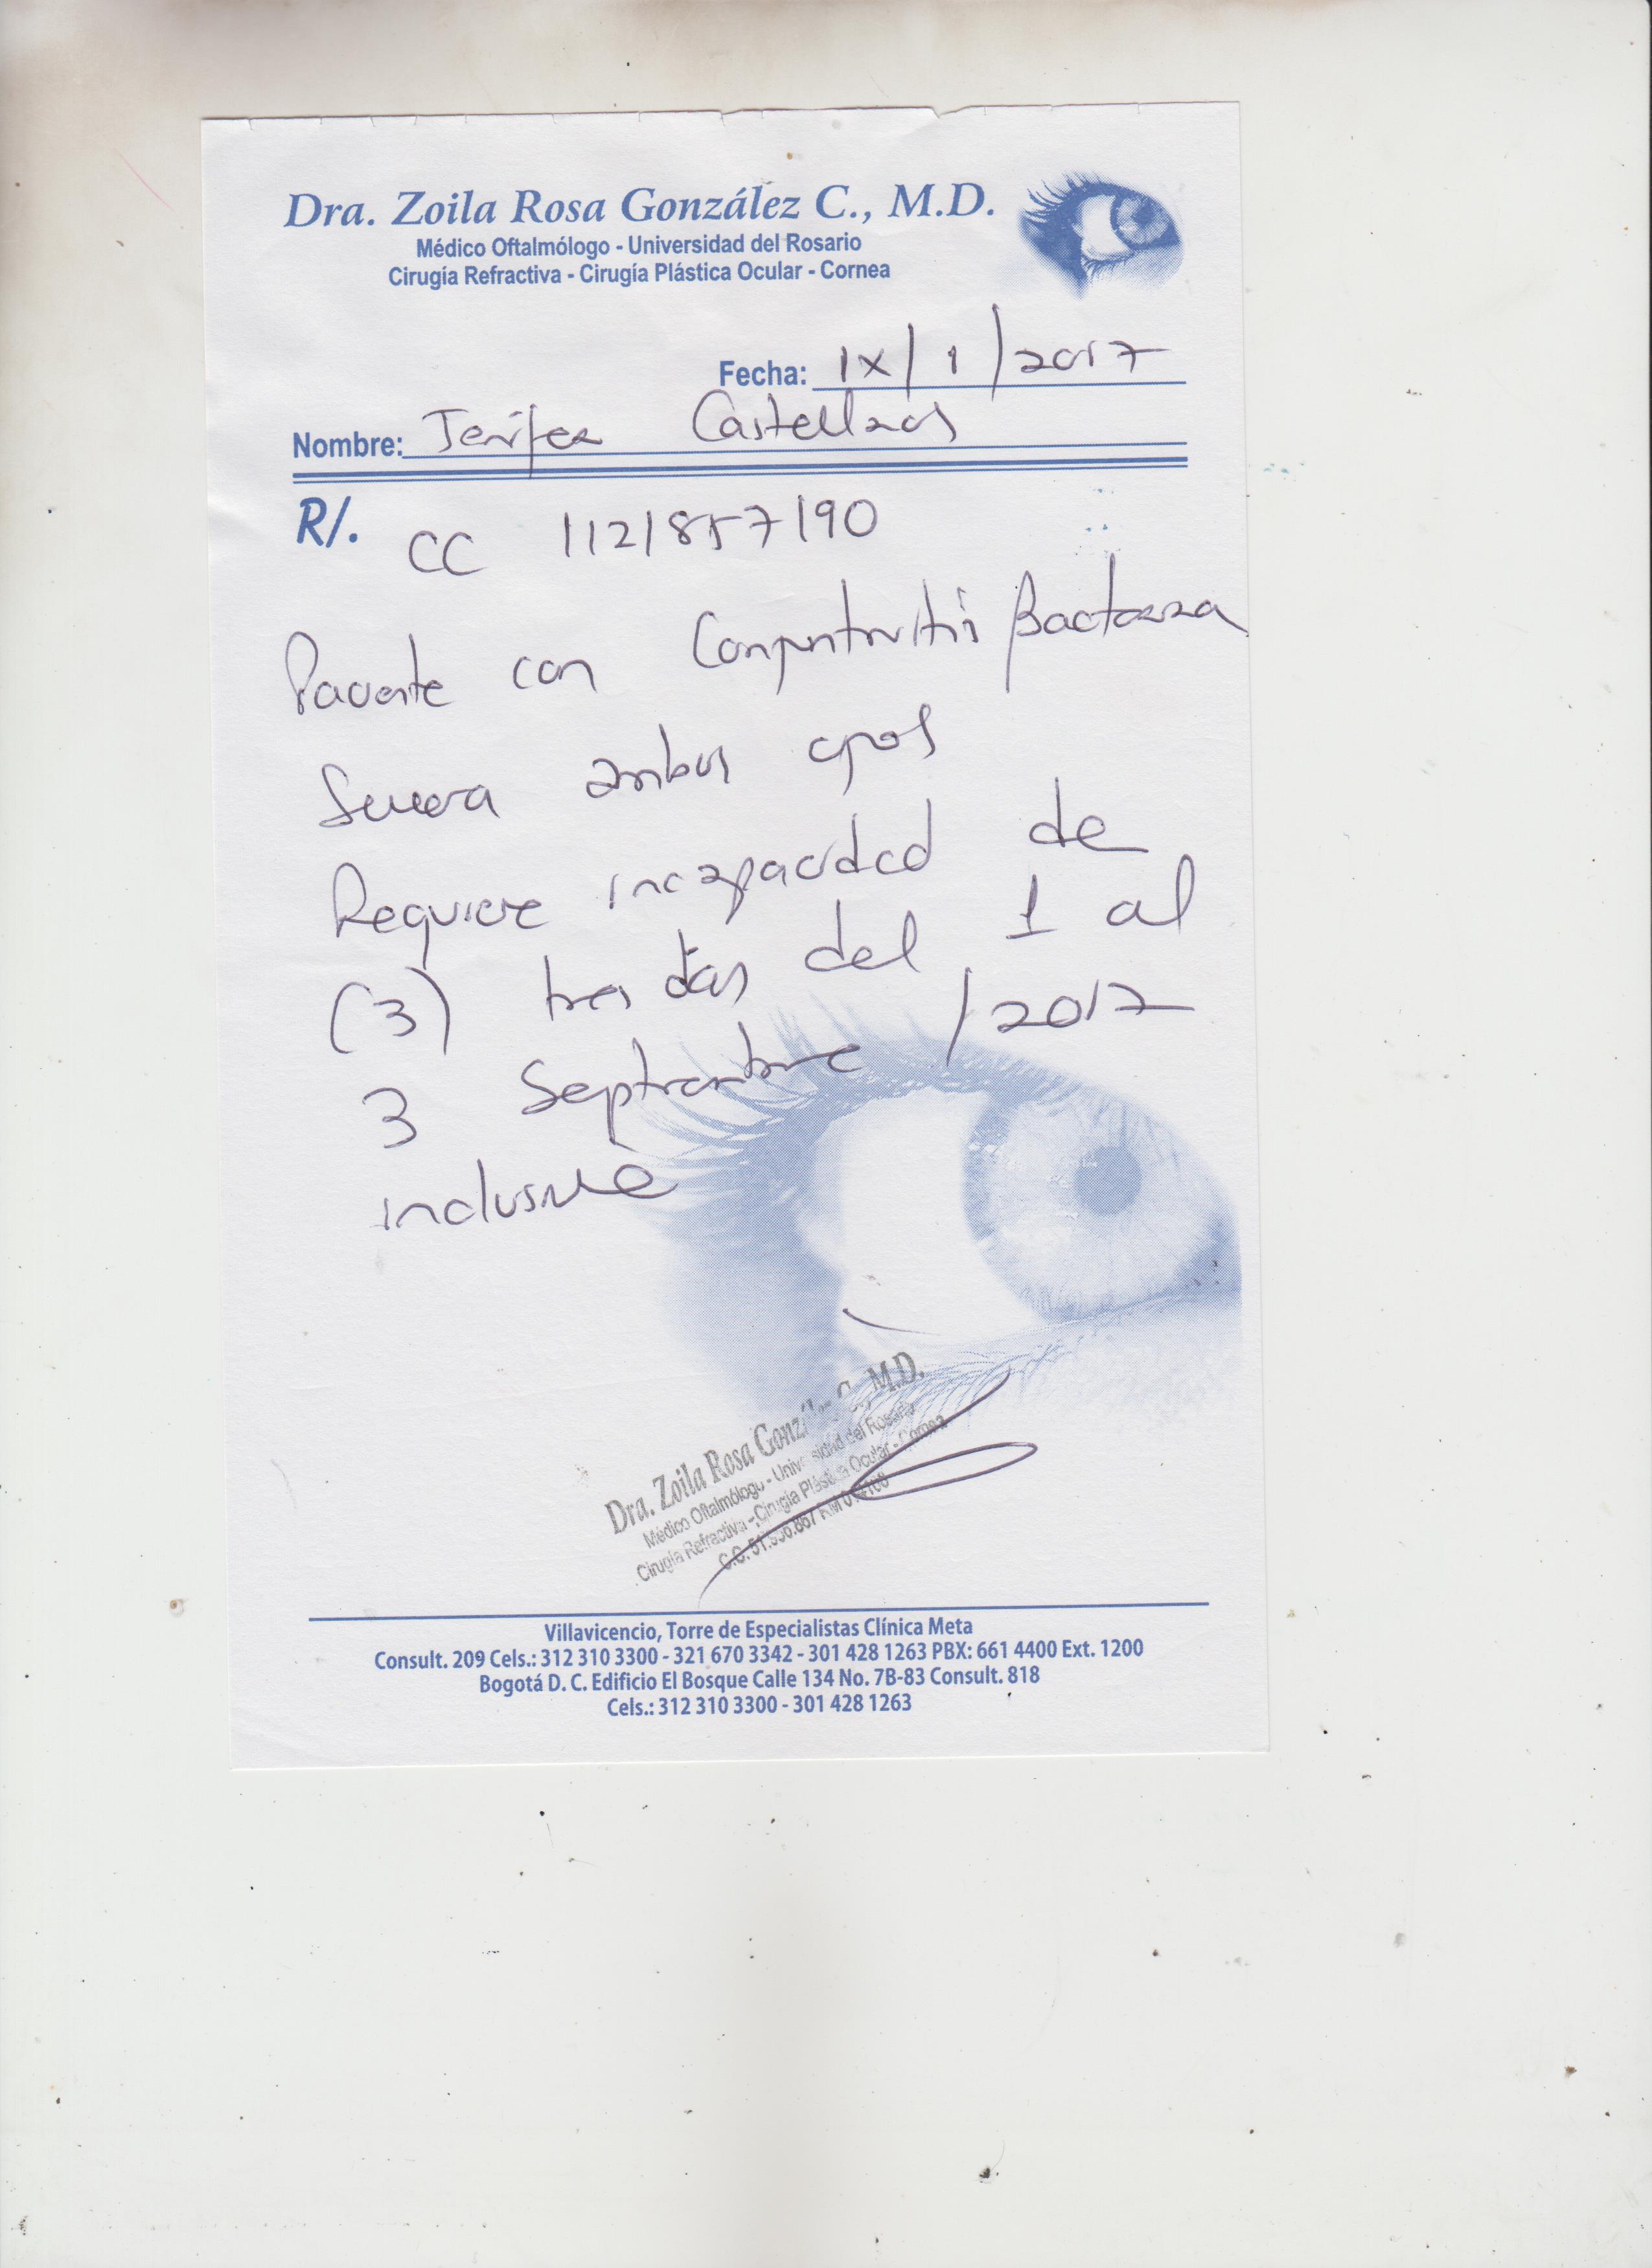 Dra. Zoila Rosa González C., M.D.
Médico Oftalmólogo - Universidad del Rosario
Cirugía Refractiva - Cirugía Plástica Ocular - Cornea
Fecha: IX/1/2017
Nombre: Jenifer Castellanos
R/. CC 1121857190
Paciente con Conjuntivitis Bacteriana
Severa ambos ojos
Requiere incapacidad de
(3) tres días del 1 al
3 Septiembre /2017
inclusive
Dra. Zoila Rosa González C., M.D.
Médico Oftalmólogo - Universidad del Rosario
Cirugía Refractiva - Cirugía Plástica Ocular - Cornea
C.C. RM
Villavicencio, Torre de Especialistas Clínica Meta
Consult. 209 Cels.: 312 310 3300 - 321 670 3342 - 301 428 1263 PBX: 661 4400 Ext. 1200
Bogotá D. C. Edificio El Bosque Calle 134 No. 7B-83 Consult. 818
Cels.: 312 310 3300 - 301 428 1263